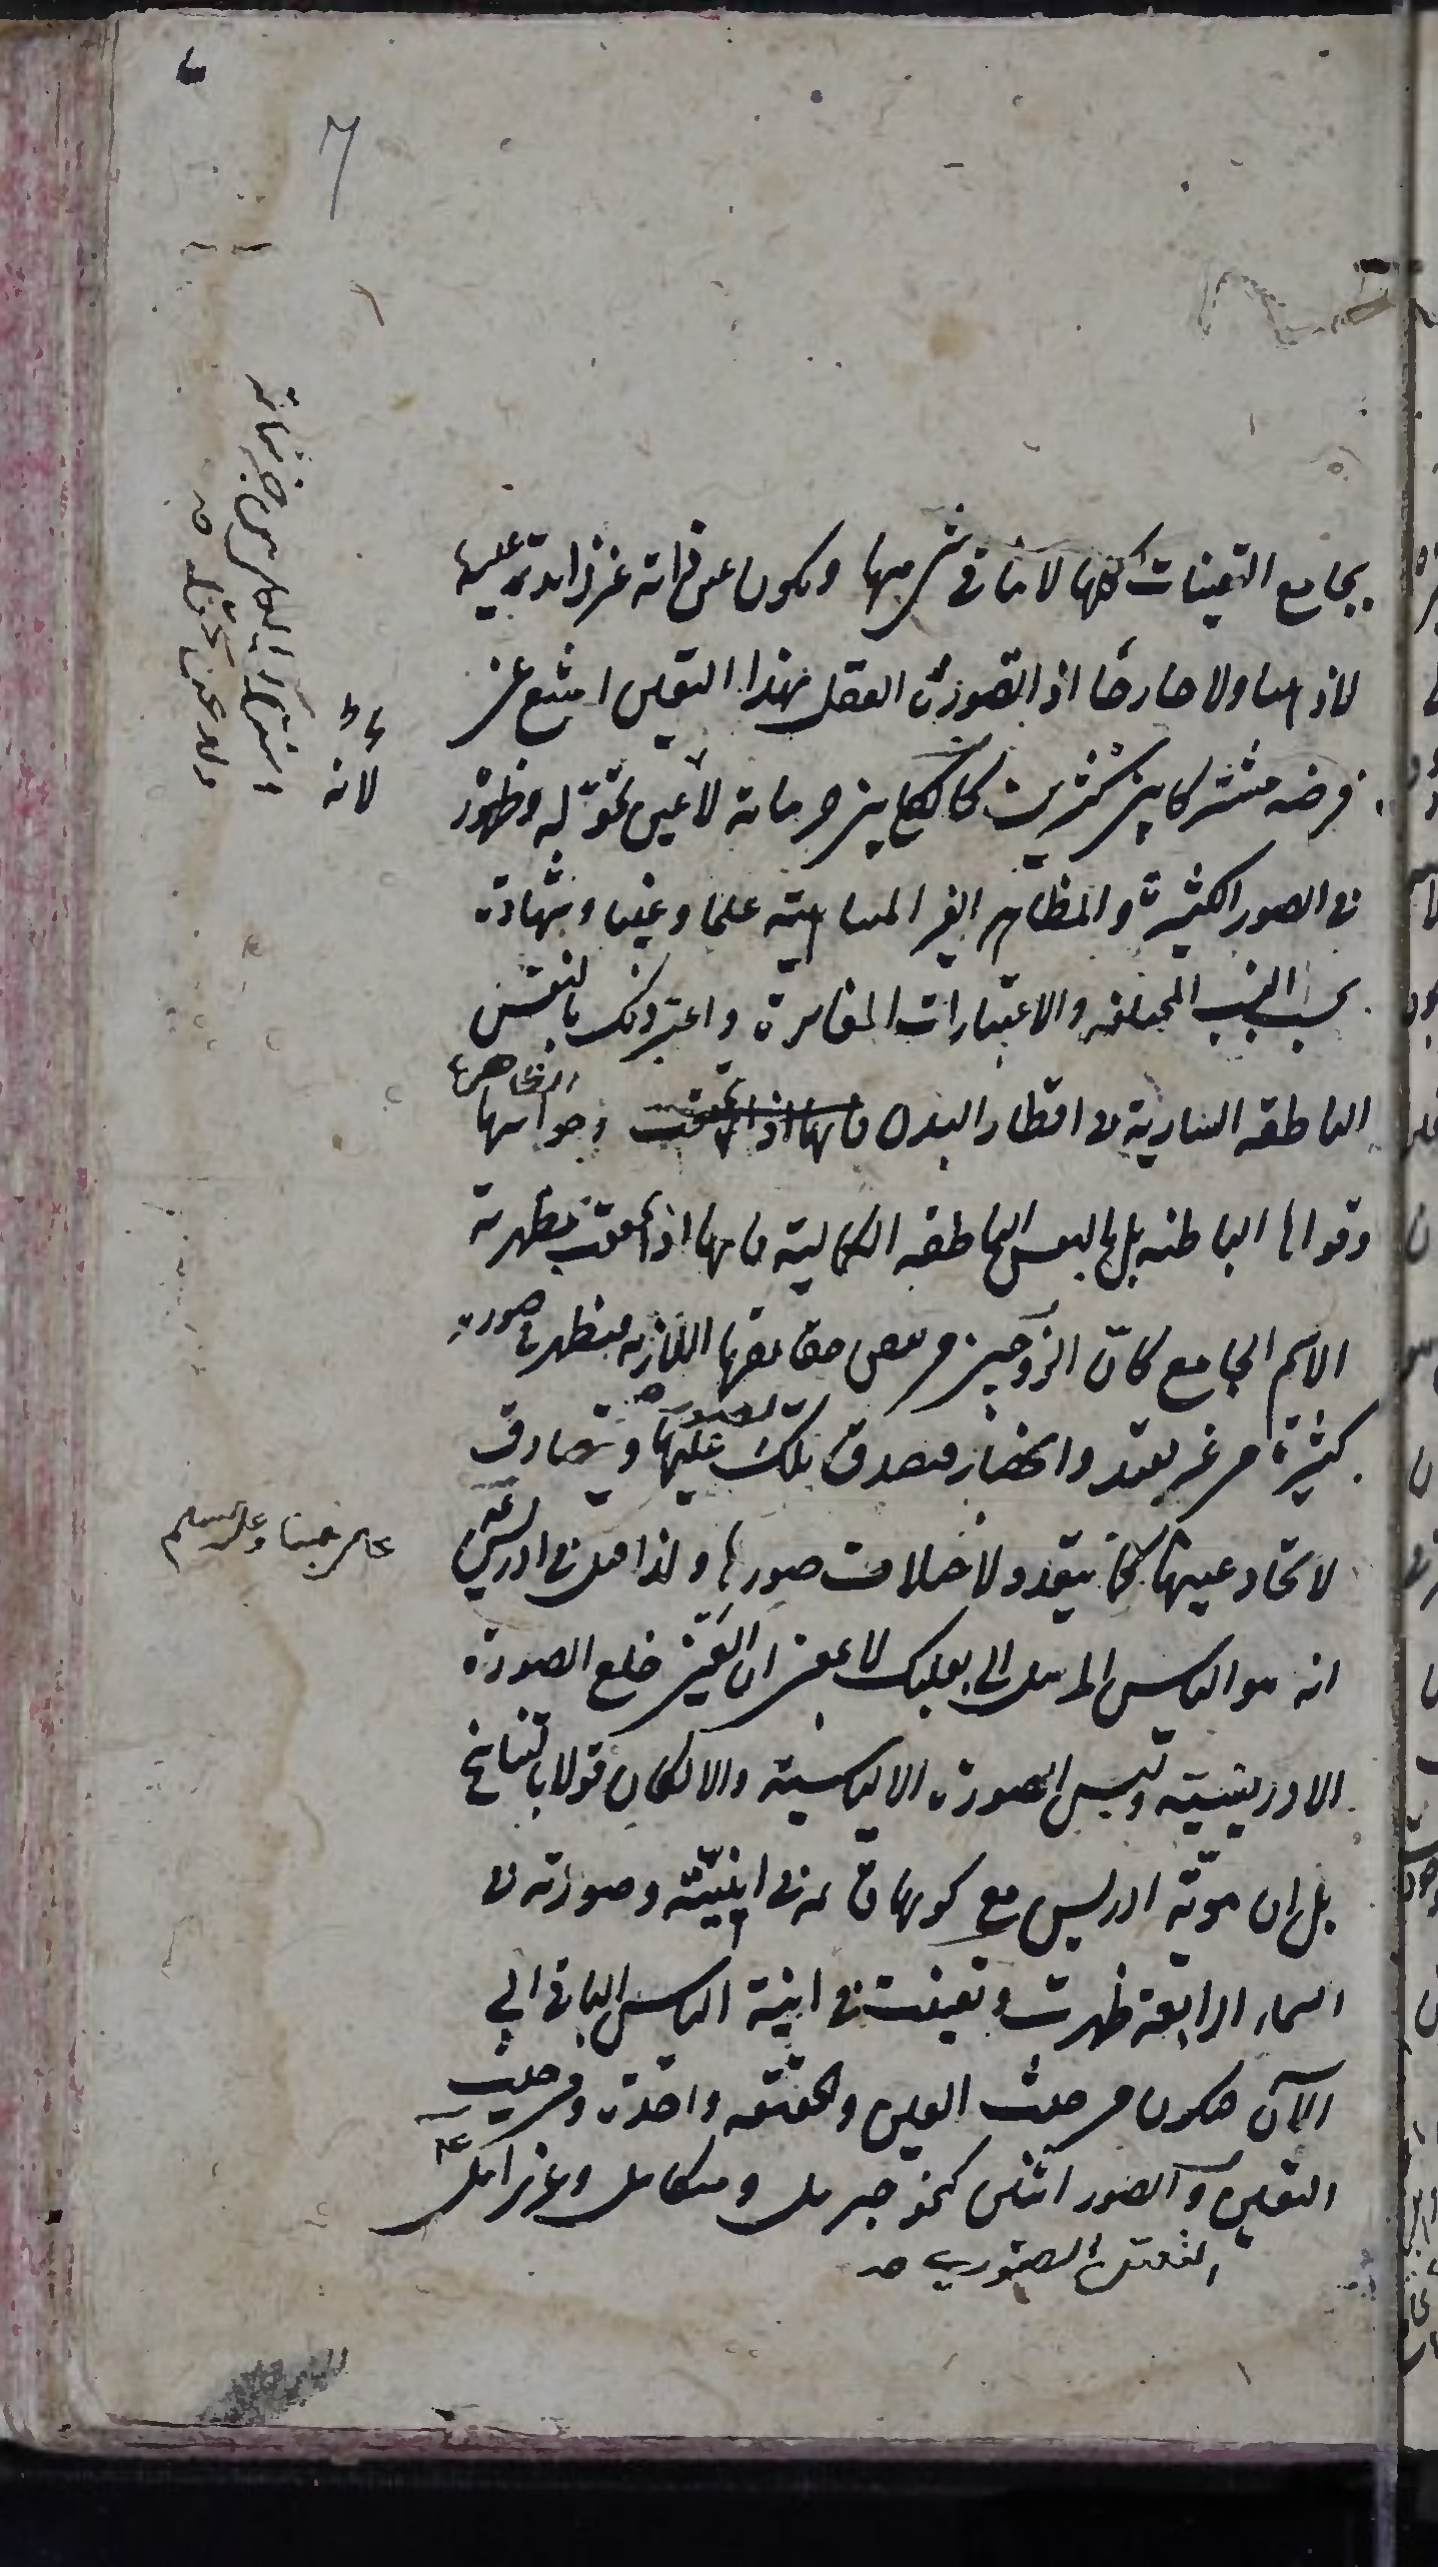 يجامع التعينات كلها لا ينافى شي منها ويكون عين ذاته غير زايد عليه
لا ذهنا ولا خارجا اذا تصوره العقل بهذا التعين امتنع عن
فرضه مشتركا بين كثيرين كالكلي بين جزئياته لا عن تحوله وظهوره
لانه
اشتراك الكلي بين جزئياته
فى الصور الكثيرة والمظاهر الغير المتناهية علما وعينا وشهادة
بحسب النسب المختلفه والاعتبارات المغايرة واعتبر ذلك بالنفس
الناطقه السارية فى اقطار البدن فانها اذا تحققت وحواسها الظاهرة
وقواها الباطنه بل بالنفس الناطقه الكمالية فانها اذا تحققت بمظهرية
الاسم الجامع كان التروحن من بعض حقايقها اللازمه فيظهر فى صور
كثيرة من غير تقيد وانحصار فيصدق تلك الصور عليها ويتصادق
لاتحاد عينها كما يتعدد لاختلاف صورها ولذا قيل فى ادريس
على نبينا وعليه السلم
انه هو الياس المرسل الى بعلبك لا بمعنى ان العين خلع الصورة
الادريسية ولبس الصورة الالياسية والا لكان قولا بالتناسخ
بل ان هوية ادريس مع كونها قائمة فى اينيته وصورته فى
السماء الرابعة ظهرت وتعينت فى اينية الياس الباقى الى
الآن فيكون من حيث العين والحقيقه واحدة ومن حيث
التعين والصور اثنين كنحو جبريل وميكائيل وعزرائيل
التعين الصوري صح